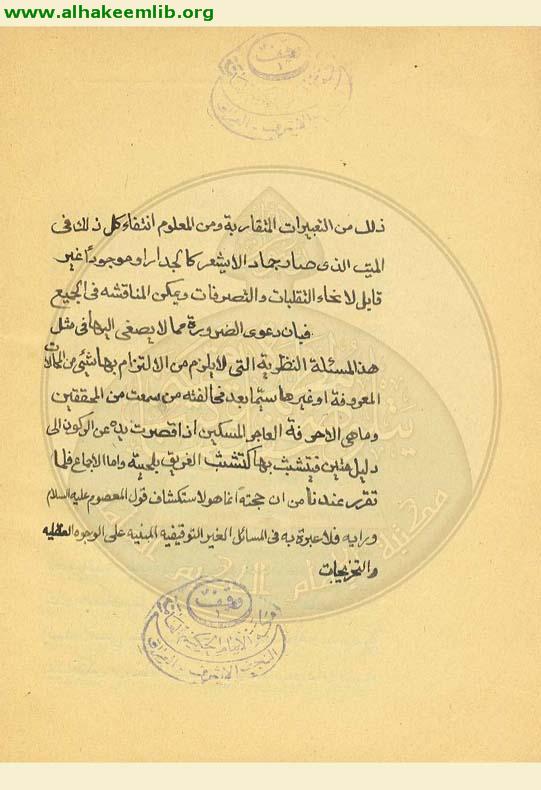 www.alhakeemlib.org
ذلك من التعبيرات المتقاربة ومن المعلوم انتفاء كل ذلك فى
الميت الذى صار جماد الايشعر كالجدار او موجوداً غير
قابل لانحاء التقلبات والتصرفات ويمكن المناقشه فى الجميع
فبان دعوى الضرورة مما لا يصغى اليها فى مثل
هذ المسئلة النظرية التى لا يلزم من الالتزام بها شئ من المحالات
المعروفة او غيرها سيّما بعد مخالفته من سمعت من المحققين
وما هى الا حرفة العاجز المسكين اذا قصرت يده عن الركون الى
دليل متين فيتشبث بها كتشبث الغريق بلحيته واما الاجماع فلما
تقرر عندنا من ان حجته انما هو لاستكشاف قول المعصوم عليه السلام
ورايه فلا عبرة به فى المسائل الغير التوقيفيه المبنيه على الوجوه العقليه
والتخريجات
وقف
مكتبة الامام الحكيم العامة
النجف الاشرف - العراق